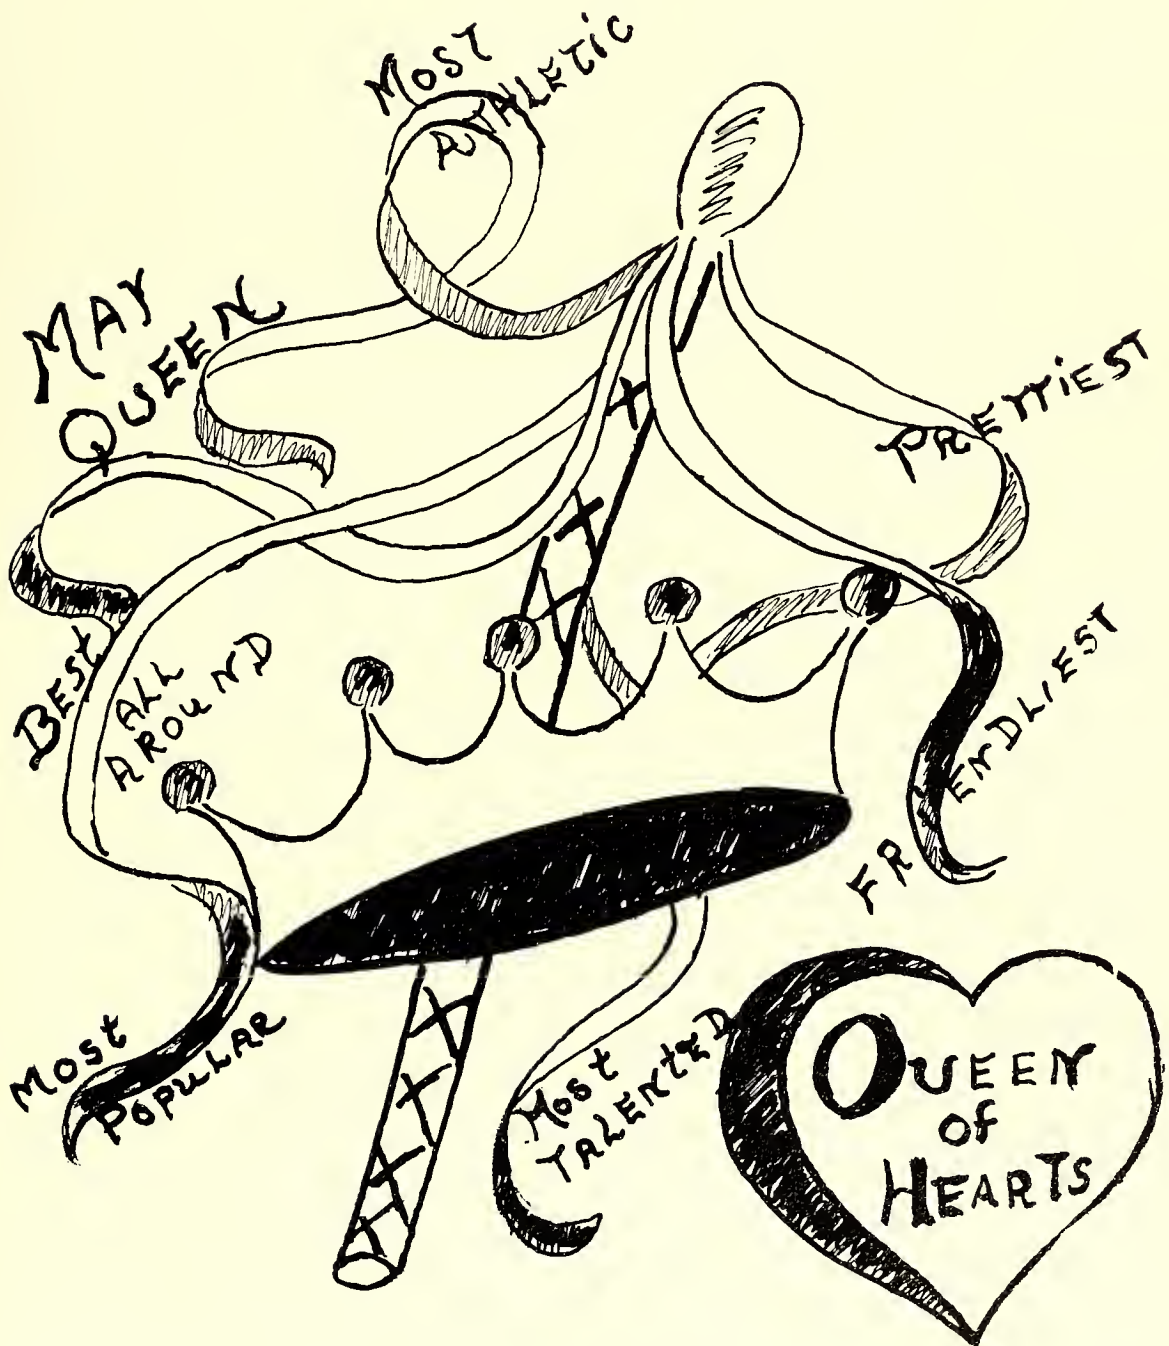 MOST
ATHLETIC
MAY
QUEEN
PRETTIEST
BEST
ALL
AROUND
FRIENDLIEST
MOST
POPULAR
MOST
TALENTED
QUEEN
OF
HEARTS